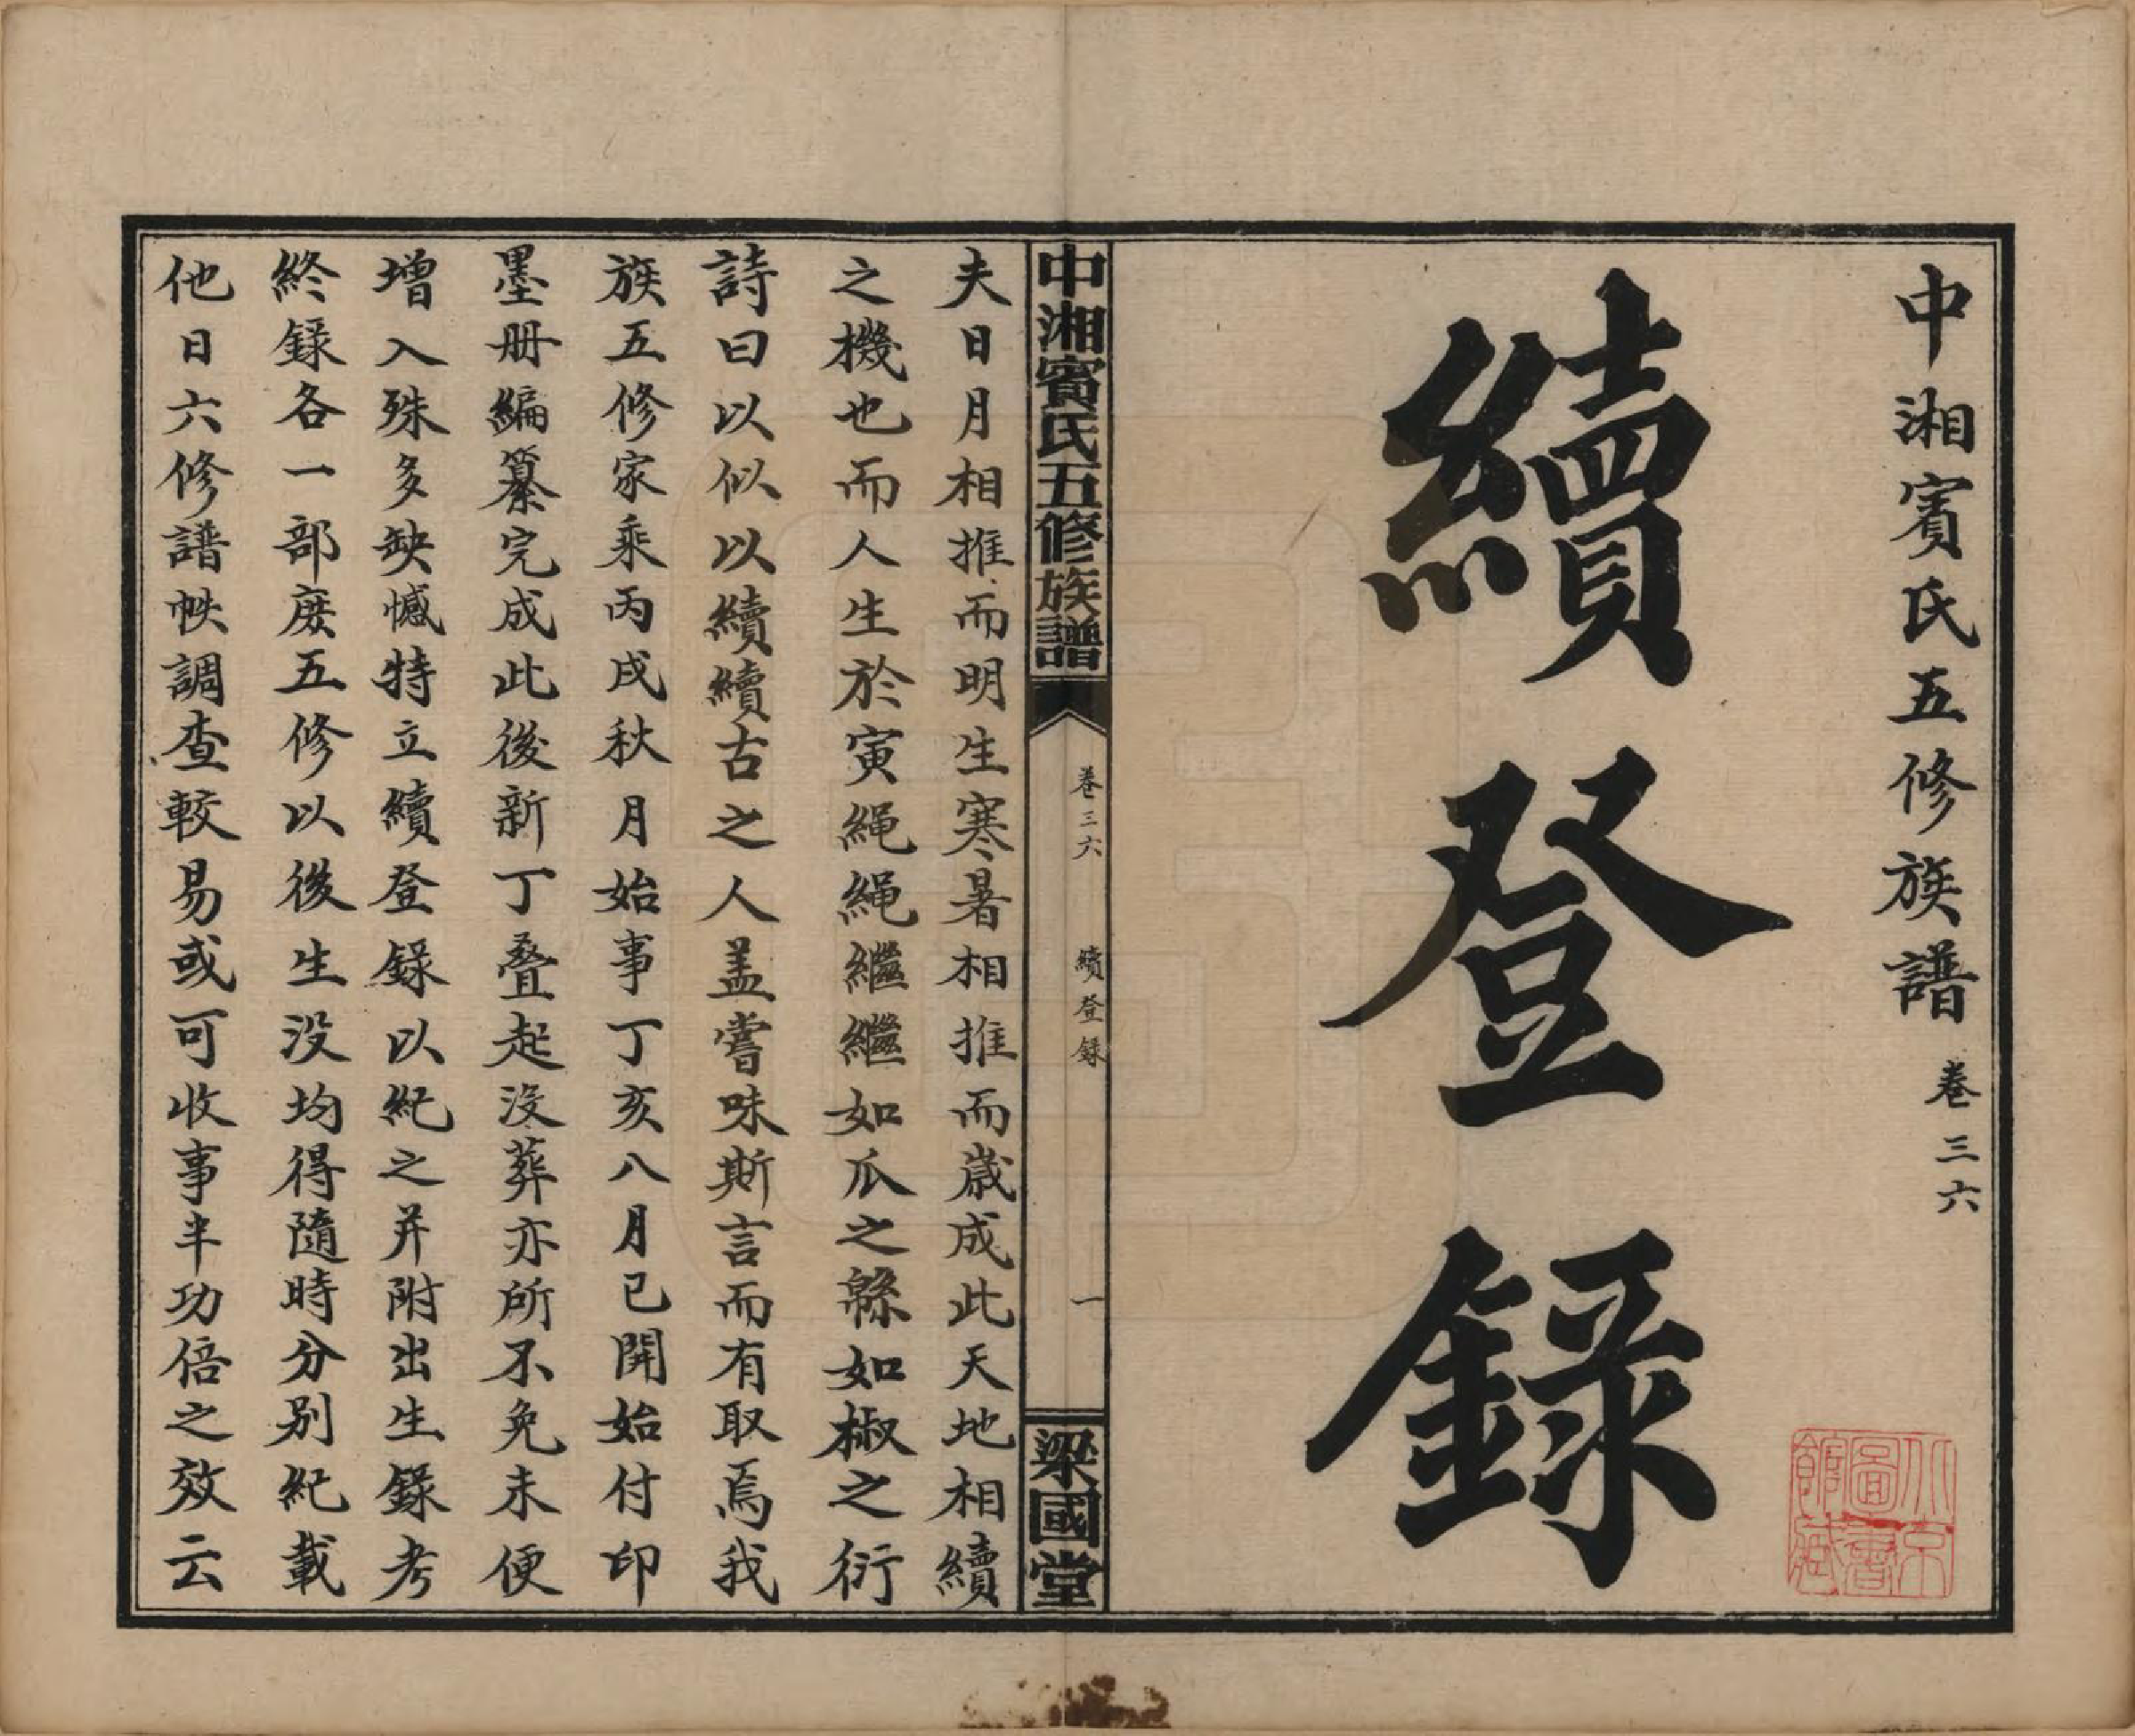 中湘賓氏五修族譜 卷三六
續登錄
北京圖書館藏
中湘賓氏五修族譜 卷三六 續登錄 一 梁國堂
夫日月相推而明生寒暑相推而歲成此天地相續
之機也而人生於寅繩繩繼繼如瓜之緜如椒之衍
詩曰以似以續續古之人盖嘗味斯言而有取焉我
族五修家乘丙戌秋月始事丁亥八月已開始付印
墨册編纂完成此後新丁叠起沒葬亦所不免未便
增入殊多缺憾特立續登錄以紀之并附出生錄考
終錄各一部庶五修以後生没均得隨時分别紀載
他日六修譜帙調查較易或可收事半功倍之效云